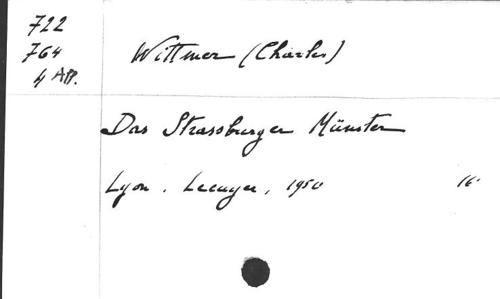 722
764
4 App.
Wittmer (Charles)
Das Strassburger Münster
Lyon. Lescuyer, 1950 16